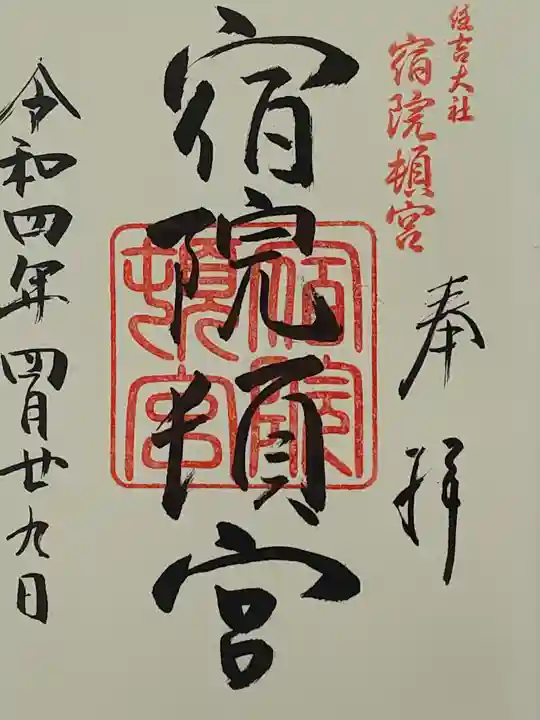 住吉大社
宿院頓宮
奉拝
宿院頓宮
宿院
頓宮
令和四年四月廿九日